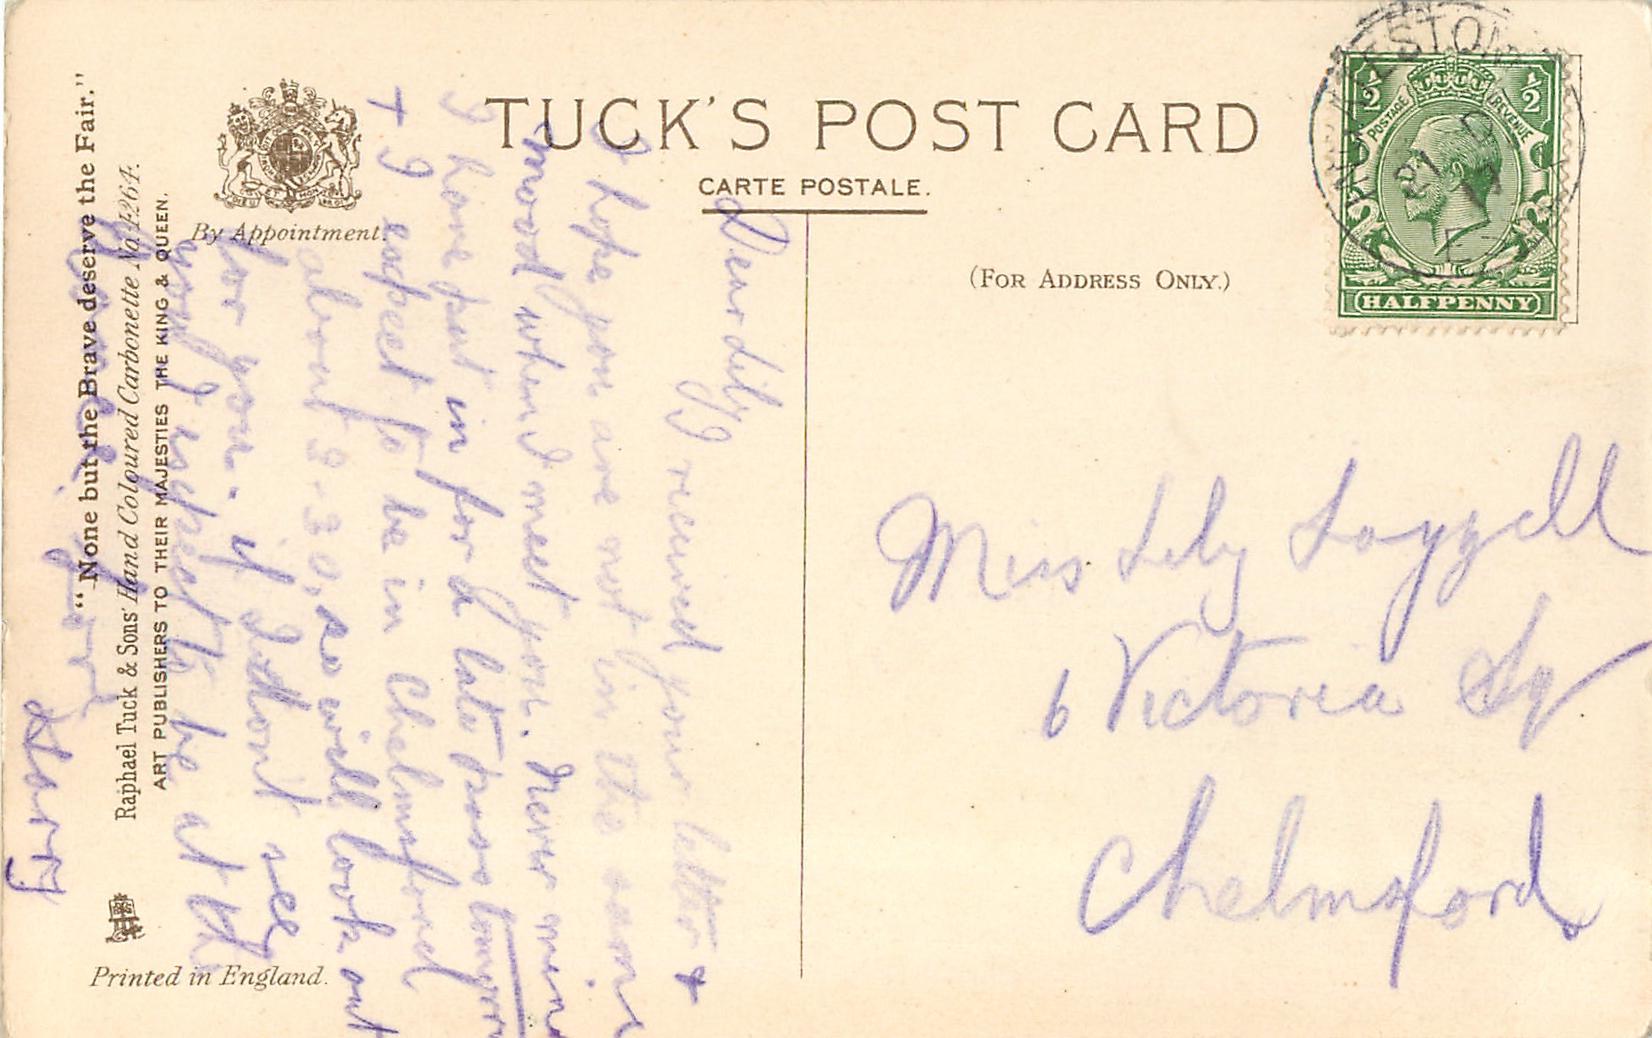 TUCK'S POST CARD
CARTE POSTALE.
(FOR ADDRESS ONLY.)
By Appointment.
"None but the Brave deserve the Fair."
Raphael Tuck & Sons' Hand Coloured Carbonette No 4264.
ART PUBLISHERS TO THEIR MAJESTIES THE KING & QUEEN.
Printed in England.
½ ½
POSTAGE REVENUE
HALFPENNY
Dear Lily
I received your letter &
I hope you are not in the same
mood when I meet you. Never mind
I have put in for a late pass
+ I expect to be in Chelmsford
about 9-30, so will look out
for you. if I dont see
you I expect to be at the
Harry
Miss Lily
6 Victoria Sq
Chelmsford